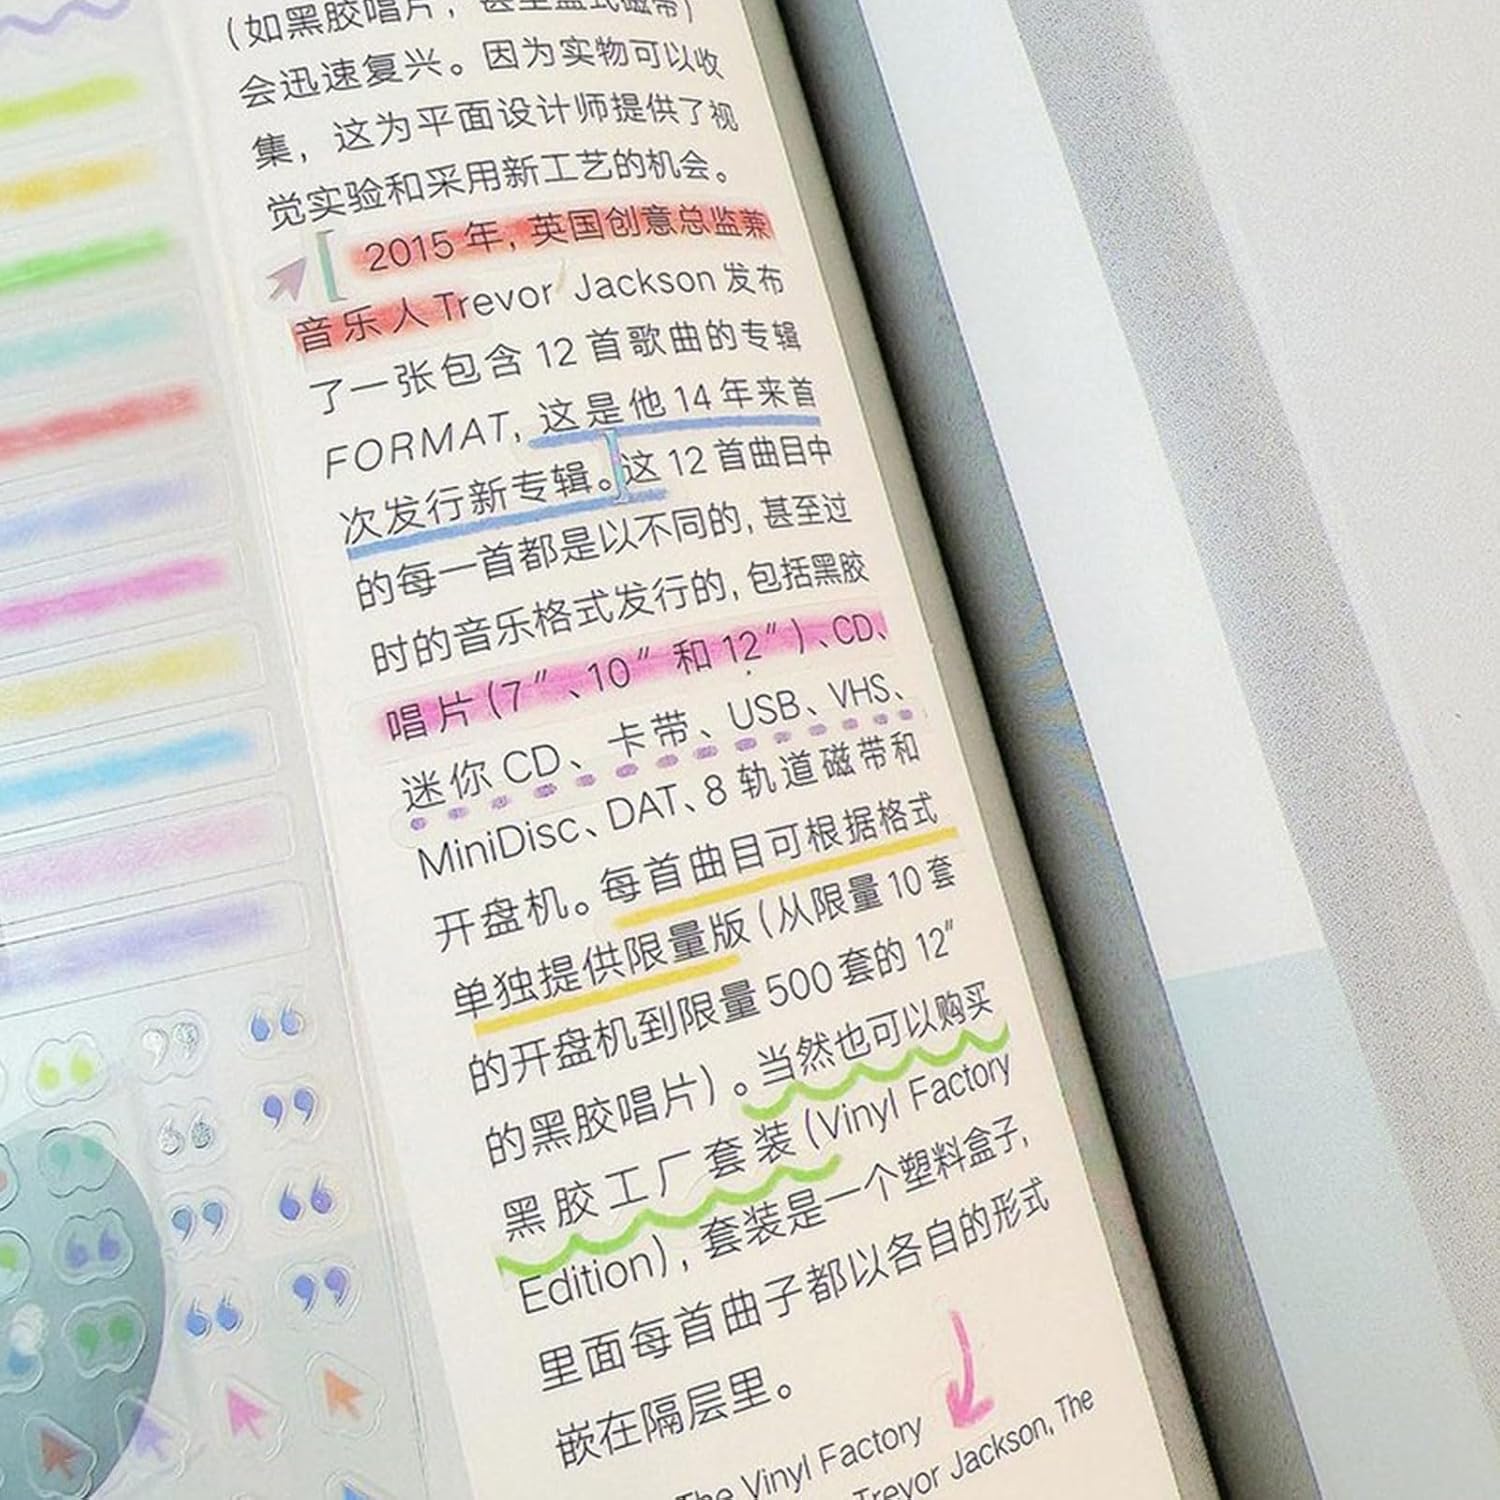 （如黑胶唱片，甚至盒式磁带）
会迅速复兴。因为实物可以收
集，这为平面设计师提供了视
觉实验和采用新工艺的机会。
2015 年，英国创意总监兼
音乐人 Trevor Jackson 发布
了一张包含 12 首歌曲的专辑
FORMAT，这是他 14 年来首
次发行新专辑。这 12 首曲目中
的每一首都是以不同的，甚至过
时的音乐格式发行的，包括黑胶
唱片（7″、10″ 和 12″）、CD、
迷你 CD、卡带、USB、VHS、
MiniDisc、DAT、8 轨道磁带和
开盘机。每首曲目可根据格式
单独提供限量版（从限量 10 套
的开盘机到限量 500 套的 12″
的黑胶唱片）。当然也可以购买
黑胶工厂套装（Vinyl Factory
Edition），套装是一个塑料盒子，
里面每首曲子都以各自的形式
嵌在隔层里。
The Vinyl Factory
Trevor Jackson, The